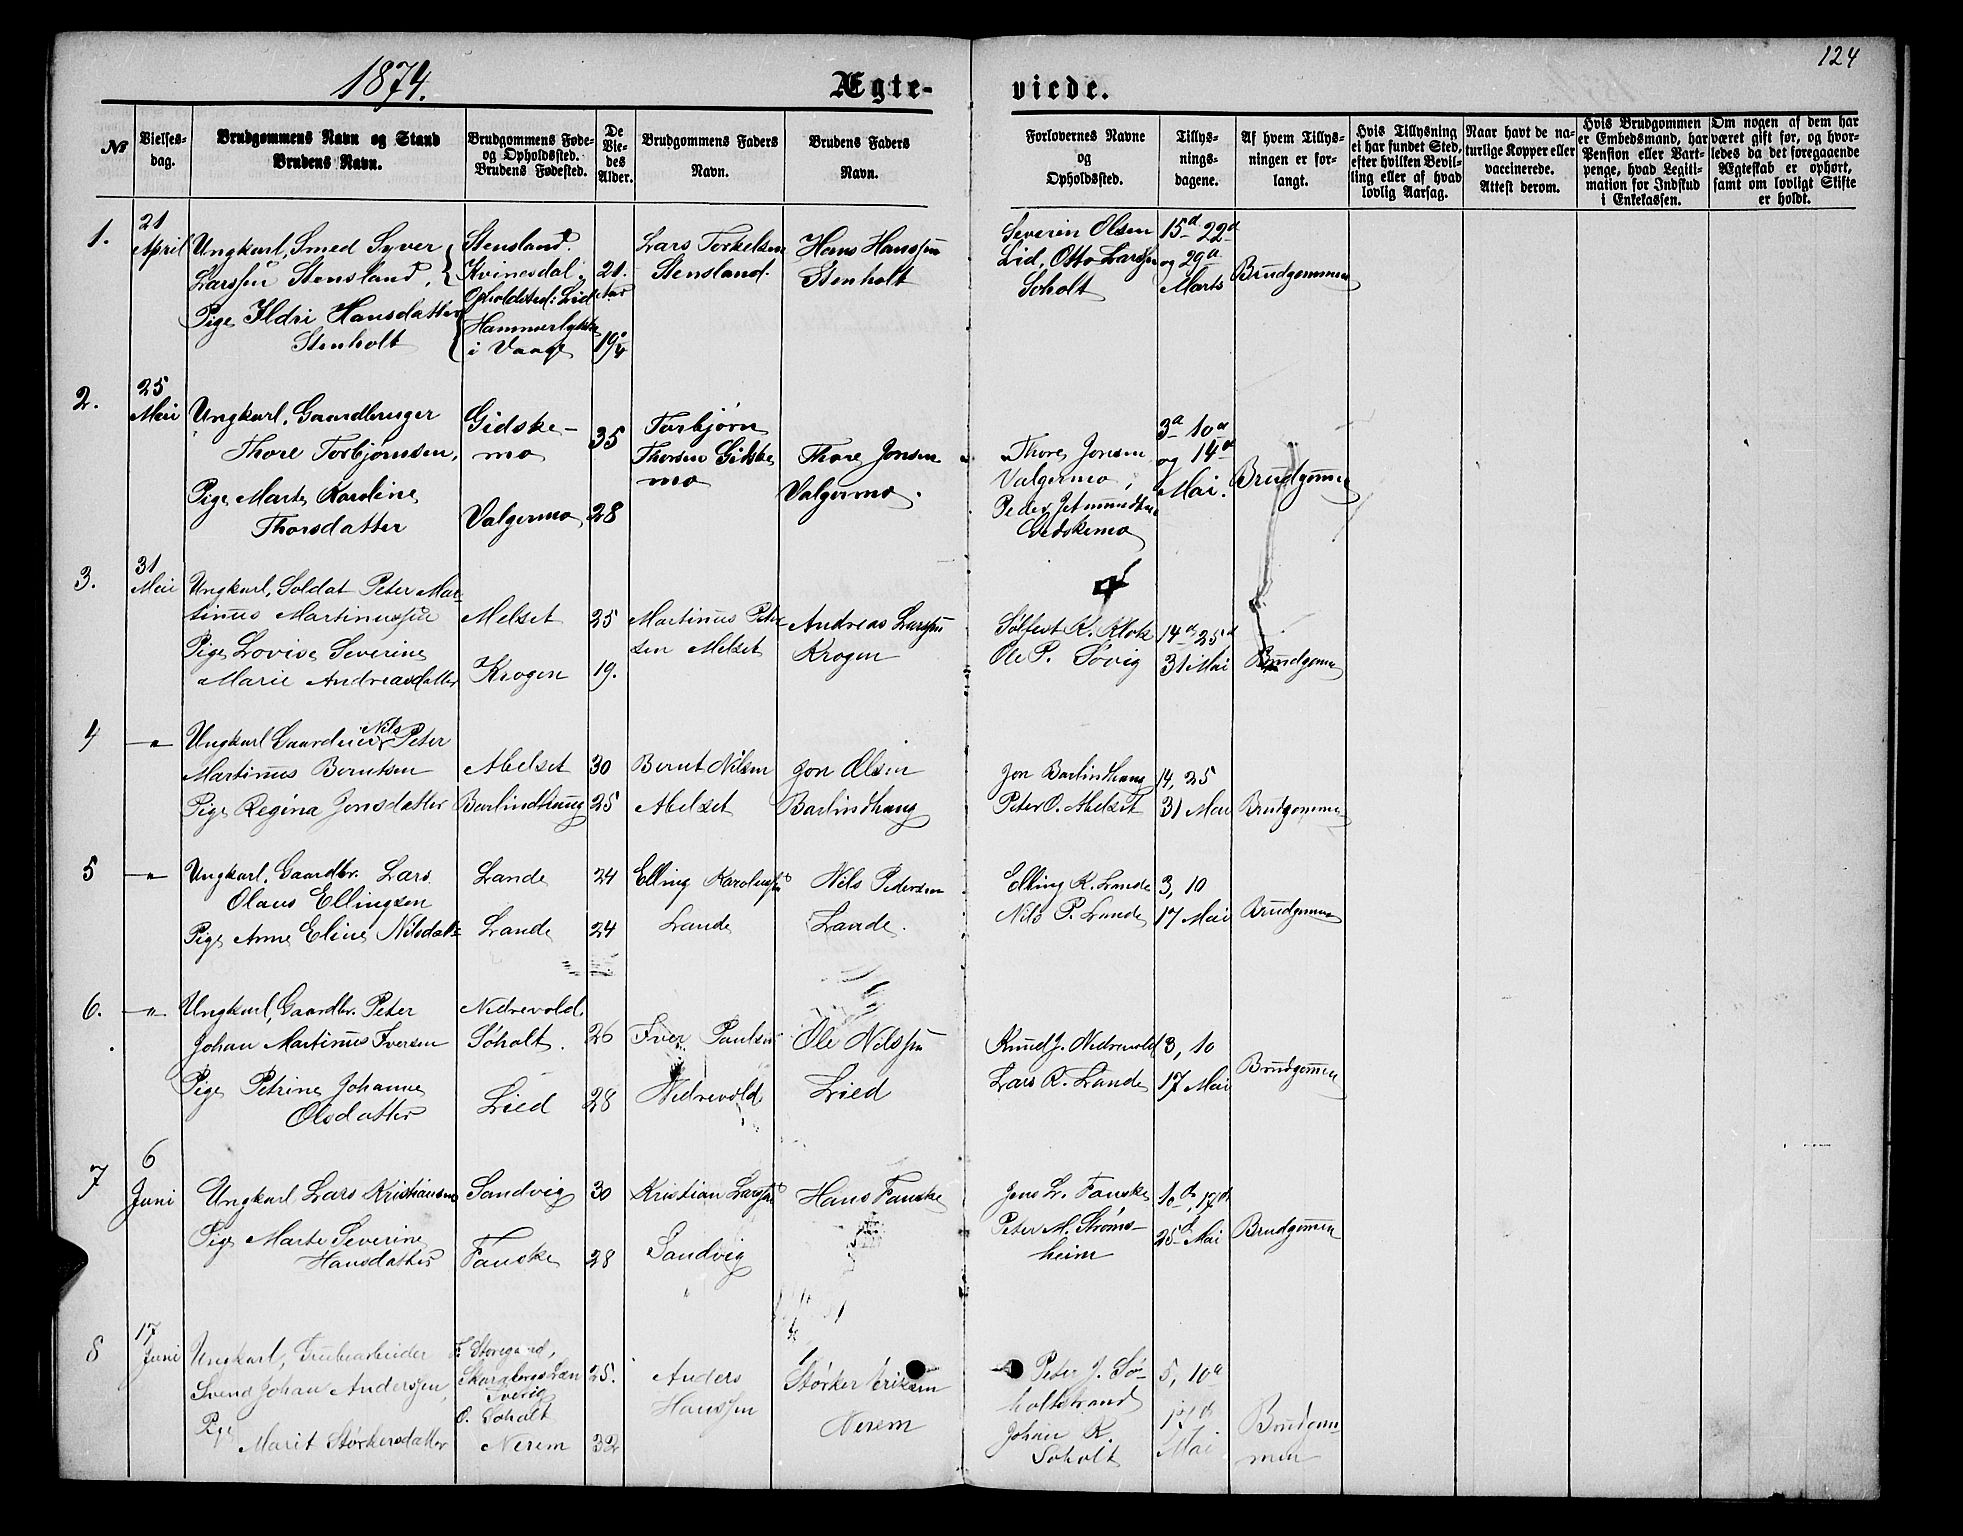 124
1874.
Ægte-
viede.
№
Vielses-
dag.
Brudgommens Navn og Stand
Brudens Navn.
Brudgommens Føde-
og Opholdssted.
Brudens Fødested.
De
Vie-
des
Alder.
Brudgommens Faders
Navn.
Brudens Faders
Navn.
Forlovernes Navne
og
Opholdssted.
Tillys-
nings-
dagene.
Af hvem Tillys-
ningen er for-
langt.
Hvis Tillysning
ei har fundet Sted,
efter hvilken Bevil-
ling eller af hvad
lovlig Aarsag.
Naar havt de na-
turlige Kopper eller
vaccinerede.
Attest derom.
Hvis Brudgommen
er Embedsmand, har
Pension eller Vart-
penge, hvad Legiti-
mation for Indskud
i Enkekassen.
Om nogen af dem har
været gift før, og hvor-
ledes da det foregaaende
Ægteskab er ophørt,
samt om lovligt Skifte
er holdt.
1.
21
April
Ungkarl, Smed Syver
Larssen Stensland,
Pige Ildri Hansdatter
Stenholt
Stensland.
Kvinesdal;
Opholdsted: Lid
i Vaage
21.
19
Lars Torkelsen
Stensland.
Hans Hanssen
Stenholt
Severin Olsen
Lid, Otto Larssen
Soholt
15d 22d
og 29d
Marts
Brudgommen
2.
25
Mai
Ungkarl, Gaardbruger
Thore Torbjørnsen,
Pige Marte Karoline
Thorsdatter
Gidske-
mo
Valgermo
35
28
Torbjørn
Thorsen Gidske
mo
Thore Jonsen
Valgermo.
Thore Jonsen
Valgermo,
Peder Jetmundsen
Gidskemo
3d 10d
og 14d
Mai.
Brudgommen
3.
31
Mai
Ungkarl, Soldat Peter Mar-
tinus Martinussen
Pige Lovise Severine
Marie Andreasdatter
Melset
Krogen
25
19.
Martinus Peter
sen Melset
Andreas Larssen
Krogen
Sølfest K. Klok
Ole P. Søvig
14d 25d
31 Mai
Brudgommen
4
"
Ungkarl Gaardeier Nils Peter
Martinus Berntsen
Pige Regina Jonsdatter
Abelset
Barlindhaug
30
25
Bernt Nilsen
Abelset
Jon Olsen
Barlindhaug
Jon Barlindhaug
Peter O. Abelset
14, 25
31 Mai
Brudgommen
5
"
Ungkarl. Gaardbr. Lars
Olaus Ellingsen
Pige Anne Eline Nilsdat
Lande
Lande
24
24
Elling Karolussen
Lande
Nils Pedersen
Lande.
Elling K. Lande
Nils P. Lande
3, 10
17 Mai
Brudgommen
6.
"
Ungkarl, Gaardbr. Peter
Johan Martinus Iversen
Pige Petrine Johanne
Olsdatter
Nedrevold.
Søholt.
Lied
26
28
Iver Paulsen
Nedrevold
Ole Nilssen
Lied
Knud J. Nedrevold
Lars K. Lande
3, 10
17 Mai
Brudgommen
7
6
Juni
Ungkarl Lars Kristiansen
Pige Marte Severine
Hansdatter
Sandvig
Fauske
30
28
Kristian Larssen
Sandvig
Hans Fauske
Jens L. Fauske
Peter M. Strøms-
heim
10d, 17d
25d Mai
Brudgommen
8
17
Juni
Ungkarl, Grubearbeider
Svend Johan Anderssen,
Pige
Marit Størkersdatter
F. Storegaard,
Skaraborgs Læn
Sverig
O. Soholt
Nerem
25.
32
Anders
Hanssen
Størker Eriksen
Nerem
Peter J. Sø-
holtstrand
Johan K.
Soholt
5, 10d
17d
Mai
Brudgom-
men